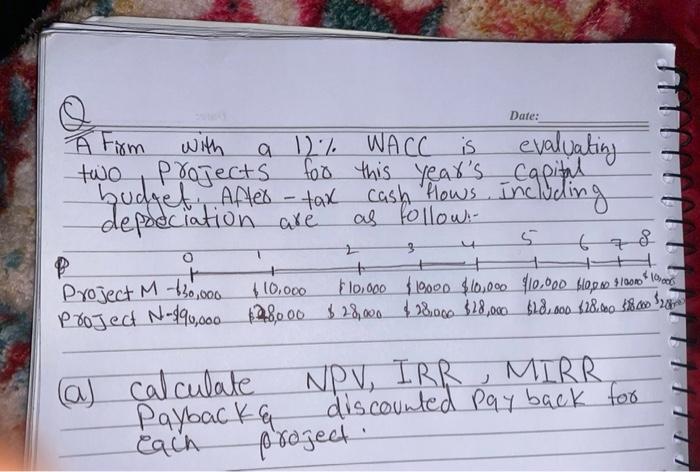 Q
Date:
A Firm with a 12% WACC is evaluating
two projects for this year's capital
budget. After-tax cash flows including
depreciation are as follow:-
0 1 2 3 4 5 6 7 8
Project M -$30,000 $10,000 $10,000 $10000 $10,000 $10,000 $10,000 $10000 $10,000
Project N -$90,000 $28,000 $28,000 $28,000 $28,000 $28,000 $28,000 $28,000 $28,000
(a) calculate NPV, IRR, MIRR
Payback & discounted payback for
each project.